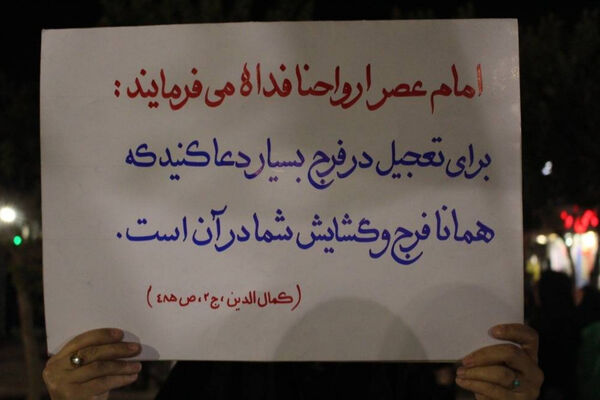 امام عصر ارواحنا فداه می فرمایند:
برای تعجیل در فرج بسیار دعا کنید که
همانا فرج و گشایش شما در آن است.
(کمال الدین، ج۲، ص ۴۸۵)